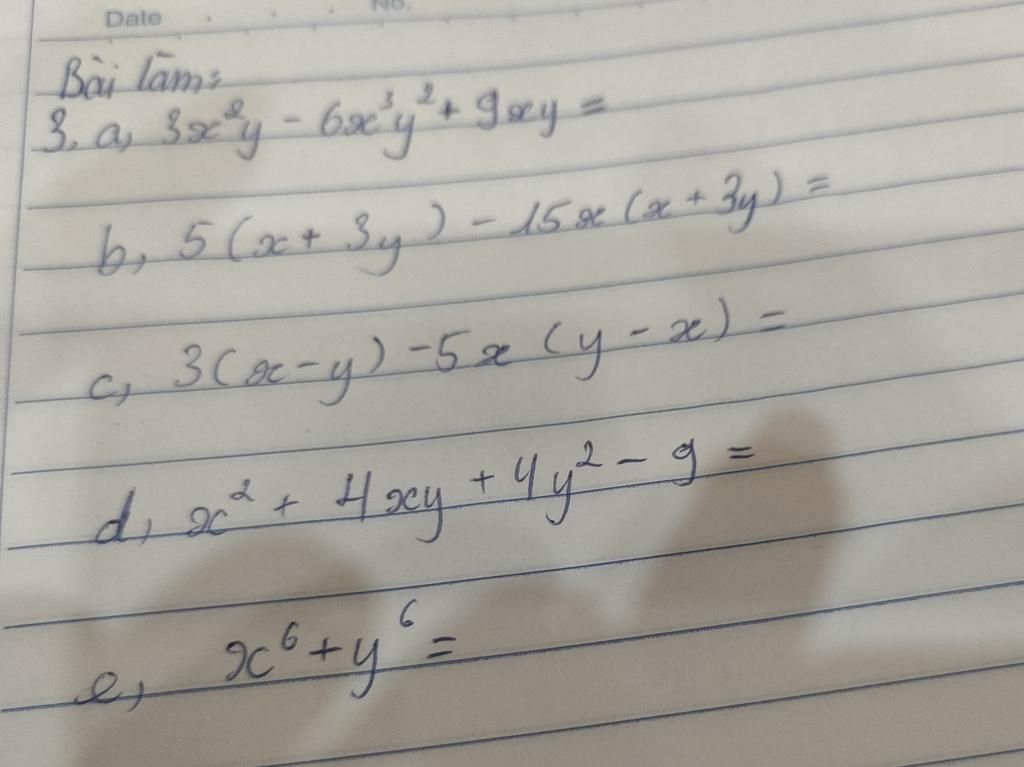 Date No.
Bài làm:
3, a, 3x²y - 6x³y² + 9xy =
b, 5(x + 3y) - 15x(x + 3y) =
c, 3(x - y) - 5x(y - x) =
d, x² + 4xy + 4y² - 9 =
e, x⁶ + y⁶ =